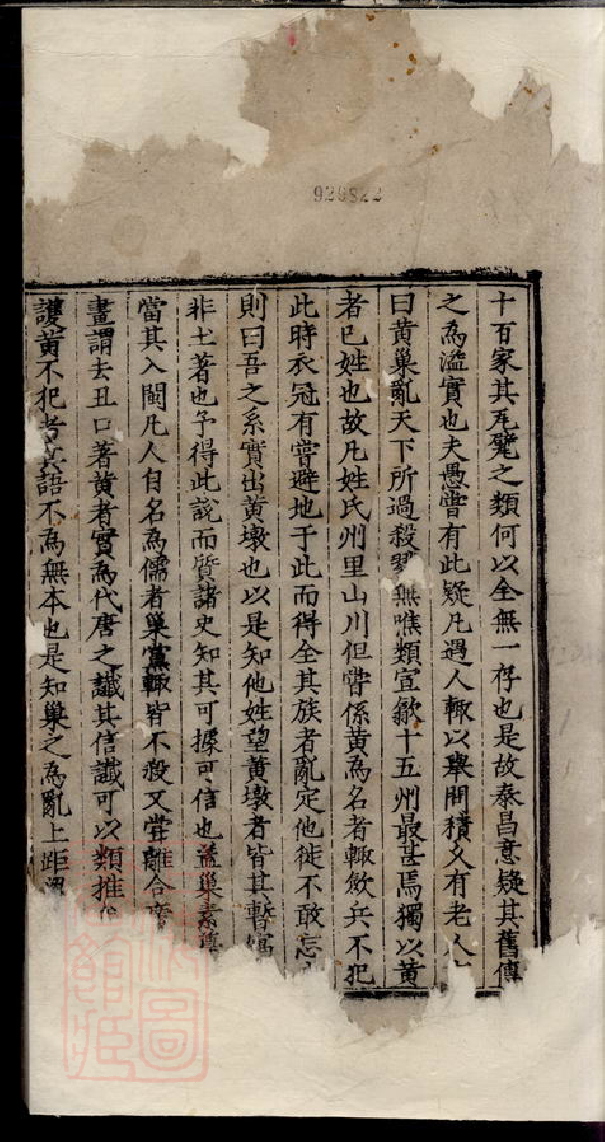 十百家其瓦甓之類何以全無一存也是故泰昌意疑其舊傳
之為濫實也夫愚嘗有此疑凡過人輒以舉問積久有老人
曰黄巢亂天下所過殺戮無噍類宣歙十五州最甚焉獨以黄
者已姓也故凡姓氏州里山川但嘗係黄為名者輒斂兵不犯
此時衣冠有嘗避地于此而得全其族者亂定他徙不敢忘
則曰吾之系實出黄墩也以是知他姓望黄墩者皆其暫寓
非土著也予得此説而質諸史知其可㩀可信也盖巢素
當其入閩凡人自名為儒者巢黨輒皆不殺又嘗離合唐
畫謂去丑口著黄者實為代唐之讖其信讖可以類推
護黄不犯者其語不為無本也是知巢之為亂上距
928822